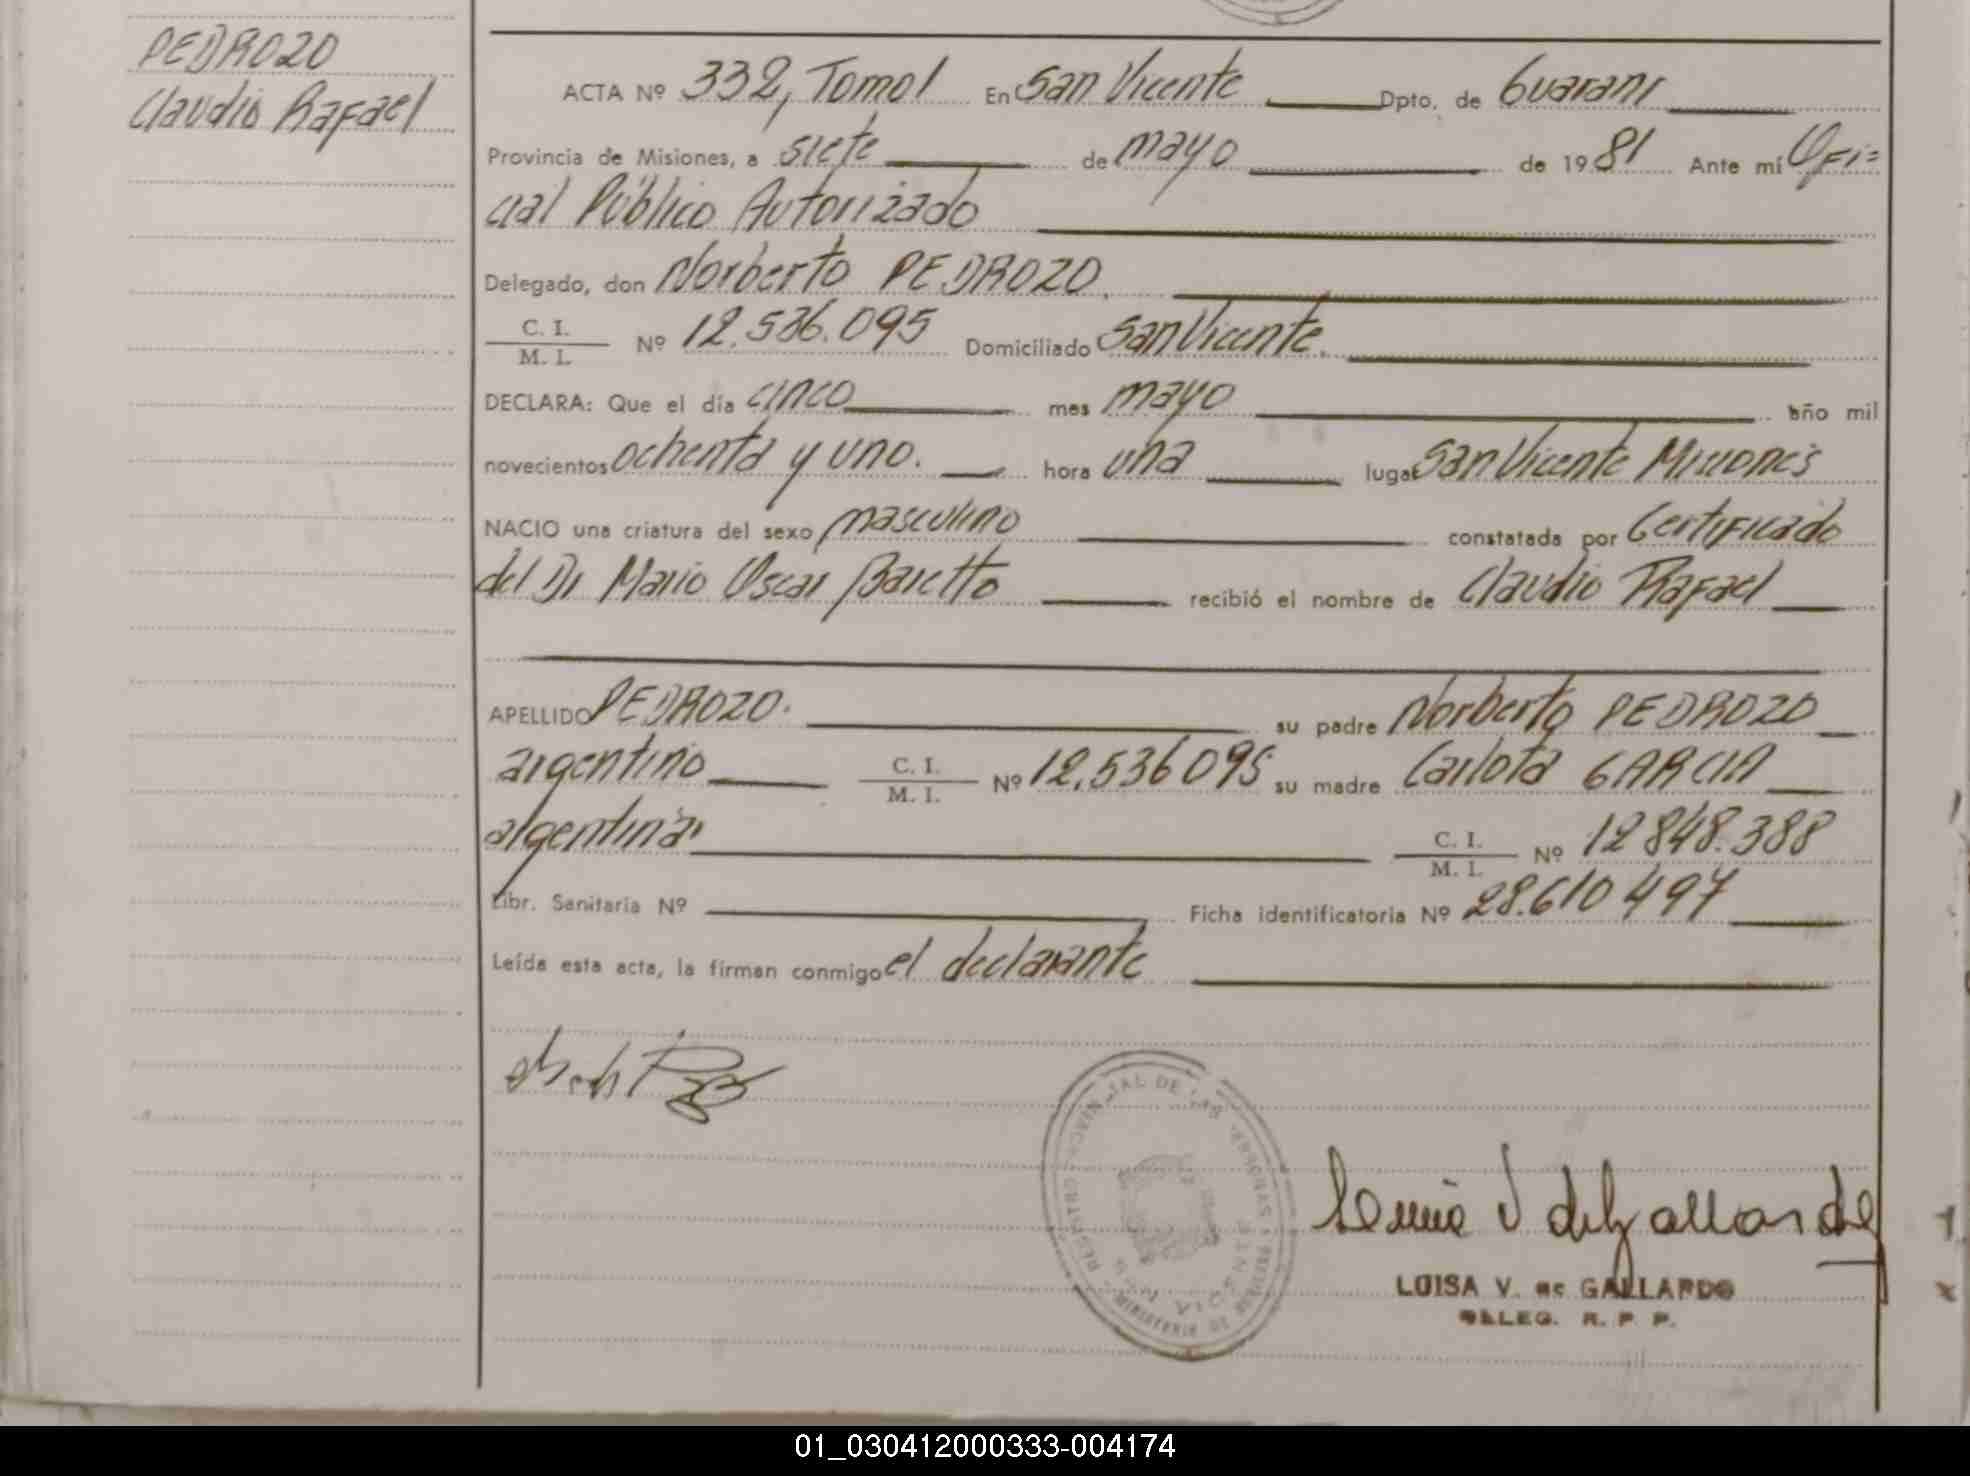 PEDROZO
Claudio Rafael
ACTA Nº 332, Tomo I En San Vicente Dpto. de Guaraní
Provincia de Misiones, a siete de mayo de 1981 Ante mí Ofi=
cial Público Autorizado
Delegado, don Norberto PEDROZO.
C. I.
M. I. Nº 12.536.095 Domiciliado San Vicente.
DECLARA: Que el día cinco mes mayo año mil
novecientos ochenta y uno. hora una lugar San Vicente Misiones
NACIO una criatura del sexo masculino constatada por Certificado
del Dr Mario Oscar Baretto recibió el nombre de Claudio Rafael
APELLIDO PEDROZO. su padre Norberto PEDROZO
argentino C. I.
M. I. Nº 12.536 095 su madre Carlota GARCIA
argentina C. I.
M. I. Nº 12 848.388
Libr. Sanitaria Nº Ficha identificatoria Nº 28.610 497
Leída esta acta, la firman conmigo el declarante
REGISTRO PROVINCIAL DE LAS PERSONAS
SAN VICENTE
MINISTERIO DE
LUISA V. de GALLARDO
DELEG. R. P. P.
01_030412000333-004174